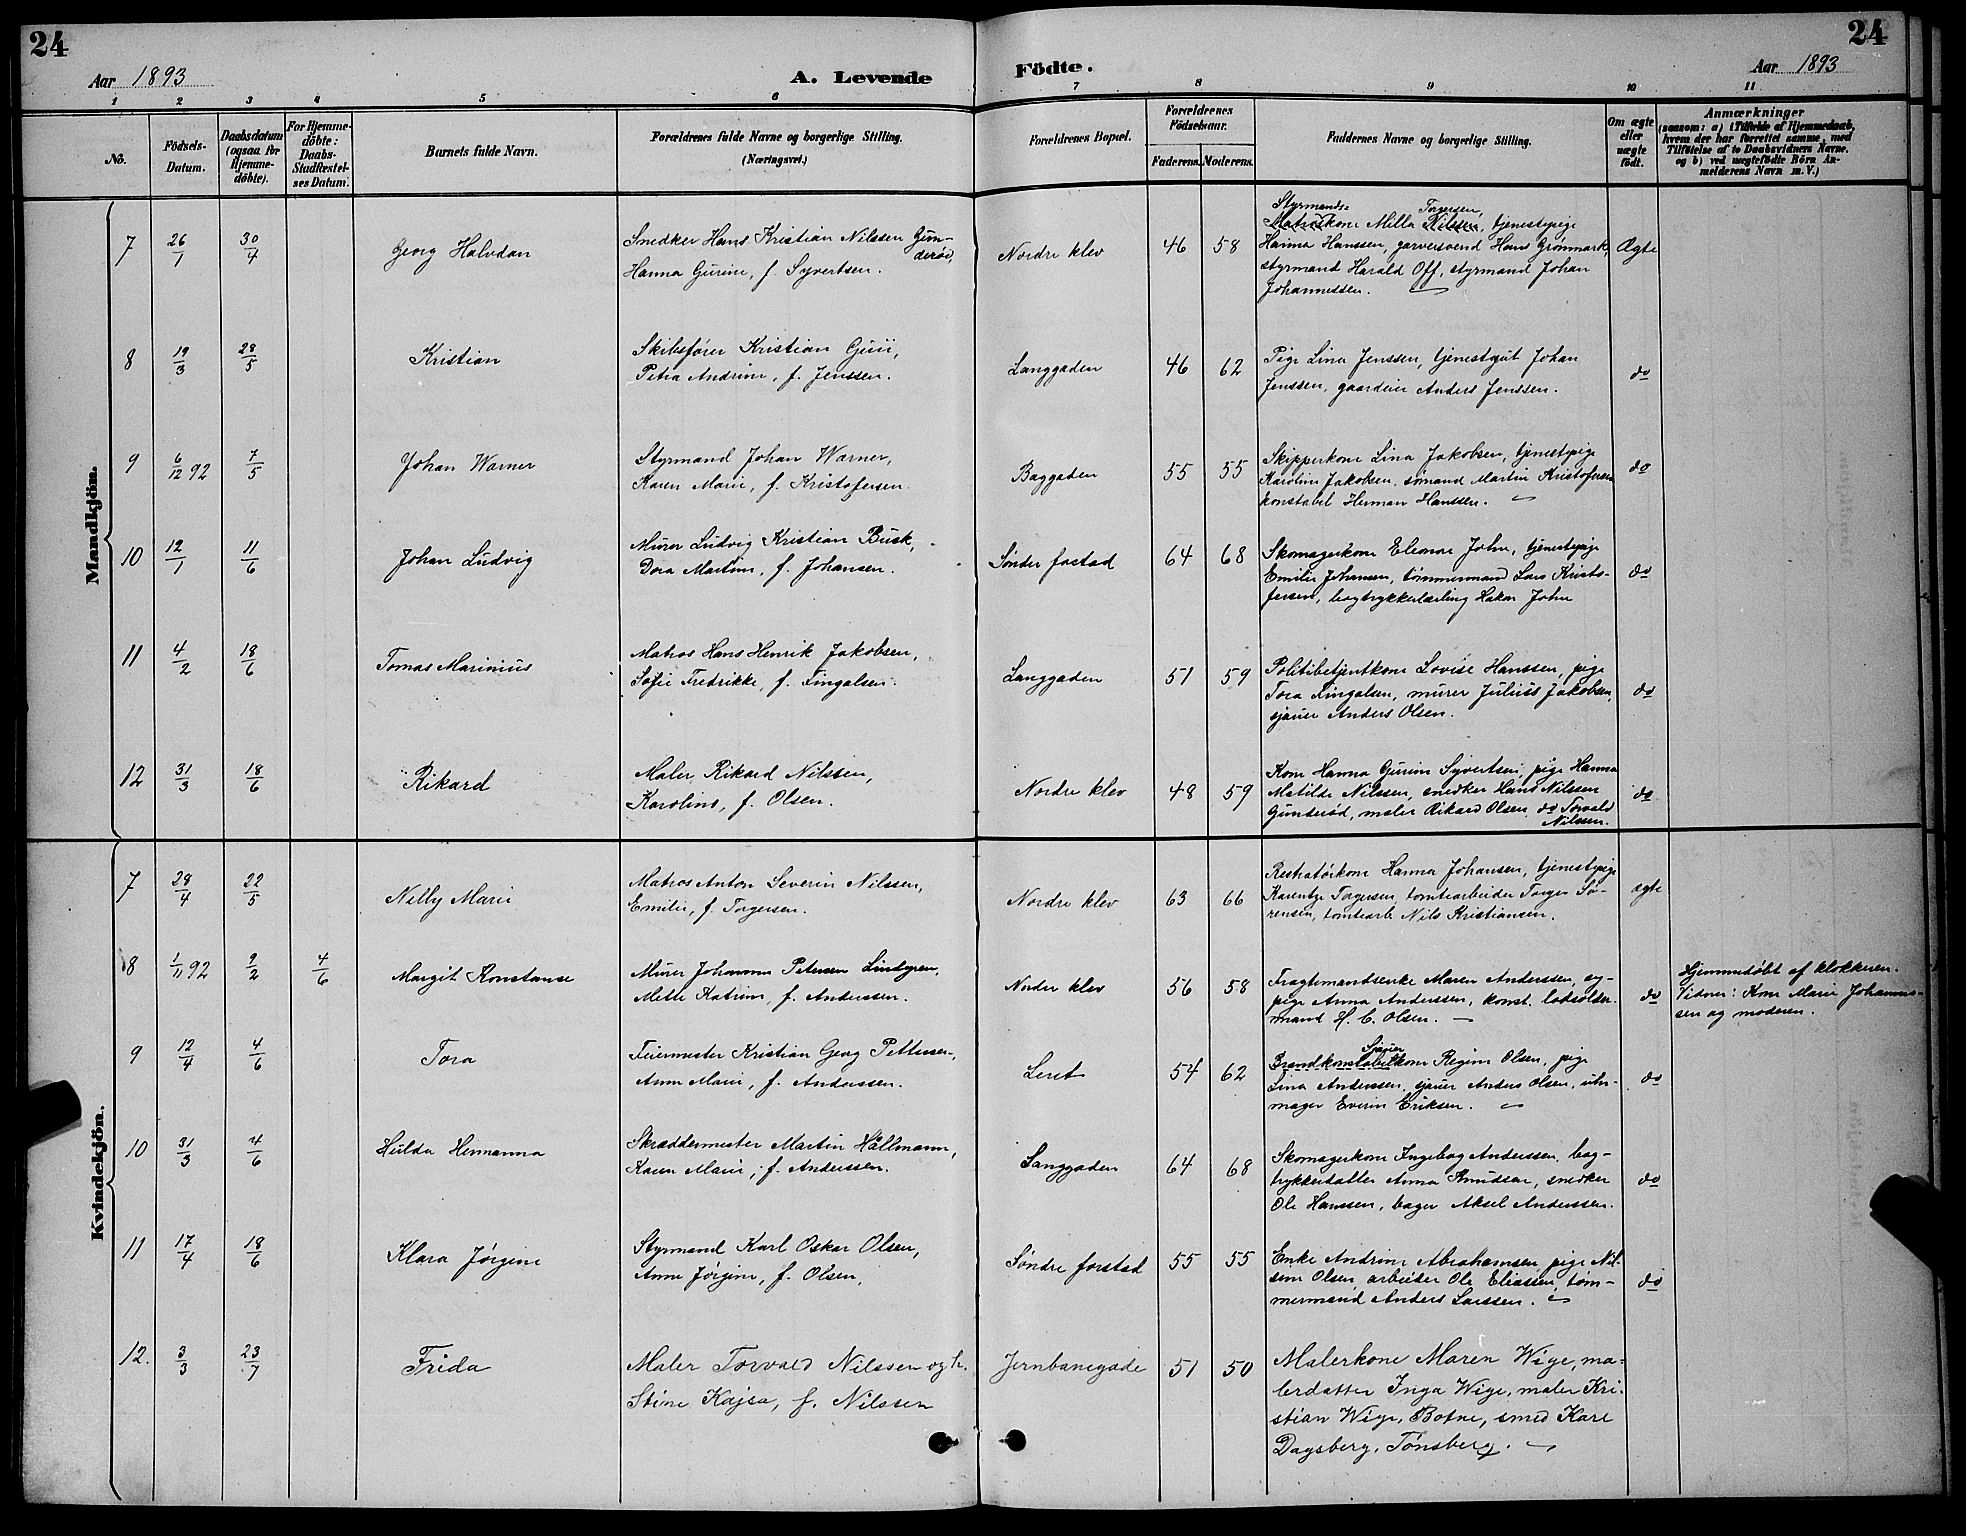 24
24
Aar 1893
A. Levende
Födte.
Aar 1893
1 2 3 4 5 6 7 8 9 10 11
No.
Födsels-
Datum.
Daabsdatum
(ogsaa for
Hjemme-
döbte).
For Hjemme-
döbte:
Daabs-
Stadfæstel-
ses Datum.
Barnets fulde Navn.
Forældrenes fulde Navne og borgerlige Stilling.
(Næringsvei.)
Forældrenes Bopæl.
Forældrenes
Födselsaar.
Faderens. Moderens.
Faddernes Navne og borgerlige Stilling.
Om ægte
eller
uægte
født.
Anmærkninger
(saasom: a) i Tilfælde af Hjemmedaab,
hvem der har forrettet samme, med
Tilføielse af to Daabsvidners Navne.
og b) ved uægtefödte Börn An-
melderens Navn m. V.)
Mandkjön.
7 26/1 30/4 Georg Halvdan
Snedker Hans Kristian Nilssen Gun-
deröd,
Hanna Gurine, f. Syvertsen.
Nordre klev 46 58
Styrmands- Torgersen,
Matroskone Milla Nilssen, tjenestepige
Hanna Hanssen, garversvend Hans Grønmark,
styrmand Harald Off, styrmand Johan
Johannessen.
Ægte
8 19/3 28/5 Kristian
Skibsfører Kristian
Petra Andrine, f. Jenssen.
Langgaden 46 62
Pige Lina Jenssen, tjenestegut Johan
Jenssen, gaardeier Anders Jenssen.
do
9 6/12 92 7/5 Johan Warner
Styrmand Johan Warner,
Karen Marie, f. Kristofersen.
Baggaden 55 55
Skipperkone Lina Jakobsen, tjenestepige
Karoline Jakobsen, sømand Martin Kristofersen
konstabel Herman Hanssen.
do
10 12/1 11/6 Johan Ludvig
Murer Ludvig Kristian Busk,
Dora Martine, f. Johansen.
Sønder forstad 64 68
Skomagerkone Eleonar John, tjenestepige
Emilie Johansen, tømmermand Lars Kristo-
fersen, bogtrykkerlærling Hakon John
do
11 4/2 18/6 Tomas Marinius
Matros Hans Henrik Jakobsen,
Sofie Fredrikke, f. Fingalsen.
Langgaden 51 59
Politibetjentkone Lovise Hanssen, pige
Tora Fingalsen, murer Julius Jakobsen,
sjauer Anders Olsen.
do
12 31/3 18/6 Rikard
Maler Rikard Nilssen,
Karoline, f. Olsen.
Nordre klev 48 59
Kone Hanna Gurine Syvertsen, pige Hanna
Matilde Nilssen, snedker Hans Nilssen
Gunderød, maler Rikard Olsen, do Torvald
Nilssen.
do
Kvindekjön.
7 28/4 22/5 Nelly Marie
Matros Anton Severin Nilssen,
Emilie, f. Torgersen.
Nordre klev 63 66
Restratørkone Hanna Johansen, tjenestepige
Karentze Torgersen, tomtearbeider Torger Sø-
rensen, tomtearb. Nils Kristiansen.
ægte
8 1/11 92 9/2 4/6 Margit Konstanse
Murer Johannes Petersen Lindgren,
Mette Katrine, f. Anderssen.
Norder klev 56 58
Fragtemandsenke Maren Anderssen, og-
pige Anna Anderssen, konst. lodsolder-
mand H. C. Olsen.
do
Hjemmedøbt af klokkeren.
Vidner: Kone Marie Johannes-
sen og moderen.
9 12/4 4/6 Tora
Feiermester Kristian Georg Pettersen,
Anne Marie, f. Anderssen.
Leret 54 62
Sjauer
Brandkonstabelkone Regine Olsen, pige
Lina Anderssen, sjauer Anders Olsen, uhr-
mager Everin Eriksen.
do
10 31/3 4/6 Hulda Hermanna
Skræddermester Martin Hallmann,
Karen Marie, f. Anderssen.
Langgaden 64 68
Skomagerkone Ingebog Anderssen, bog-
trykkerdatter Anna Knudsen, snedker
Ole Hanssen, bager Aksel Anderssen.
do
11 17/4 18/6 Klara Jørgine
Styrmand Karl Oskar Olsen,
Anne Jørgine, f. Olsen,
Søndre forstad 55 55
Enke Andrine Abrahamsen, pige Nil-
sine Olsen, arbeider Ole Eliassen, tøm-
mermand Anders Larssen.
do
12. 3/3 23/7 Frida
Maler Torvald Nilssen og h.
Stine Kajsa, f. Nilssen
Jernbanegade 51 50
Malerkone Maren Wige, ma-
lerdatter Inga Wige, maler Kri-
stian Wige, Botne, smed Karl
Dagsberg, Tønsberg.